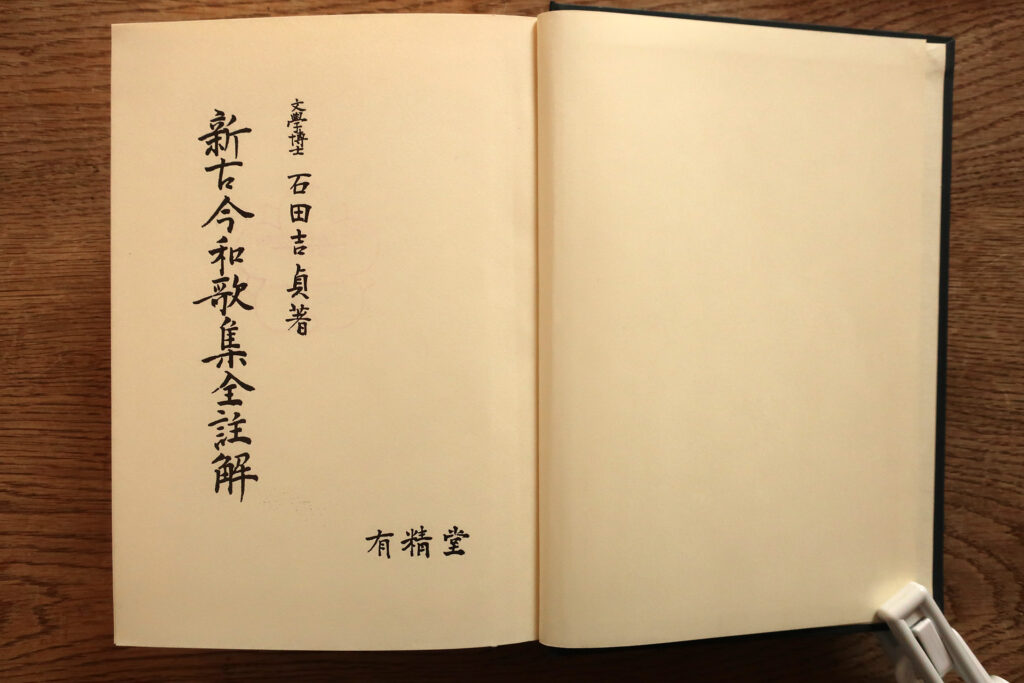 文學博士 石田吉貞著
新古今和歌集全註解
有精堂